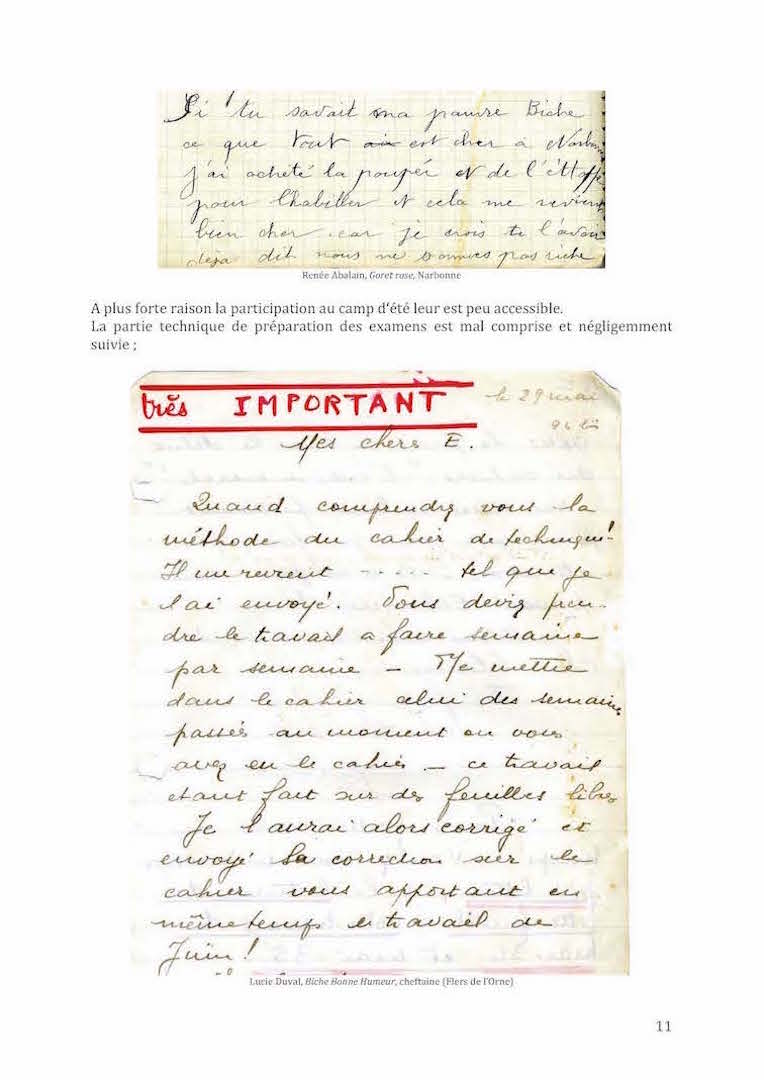 Si tu savait ma pauvre Biche
ce que tout est cher à Narbonne
j'ai acheté la poupéi et de l'étoffe
pour l'habiller et cela me revient
bien cher car je crois te l'avoir
deja dit nous ne sommes pas riche
Renée Abalain, Goret rose, Narbonne
A plus forte raison la participation au camp d'été leur est peu accessible.
La partie technique de préparation des examens est mal comprise et négligemment
suivie ;
très IMPORTANT
le 29 mai
Mes chers E.
Quand comprendrez vous la
méthode du cahier de technique!
Il me revient ..... tel que je
l'ai envoyé. Vous deviez pren-
dre le travail a faire semaine
par semaine - Me mettre
dans le cahier celui des semaines
passées au moment ou vous
avez eu le cahier - ce travail
etant fait sur des feuilles libres
Je l'aurai alors corrigé et
envoyé la correction sur le
cahier vous apportant en
même temps le travail de
Juin!
Lucie Duval, Biche Bonne Humeur, cheftaine (Flers de l'Orne)
11